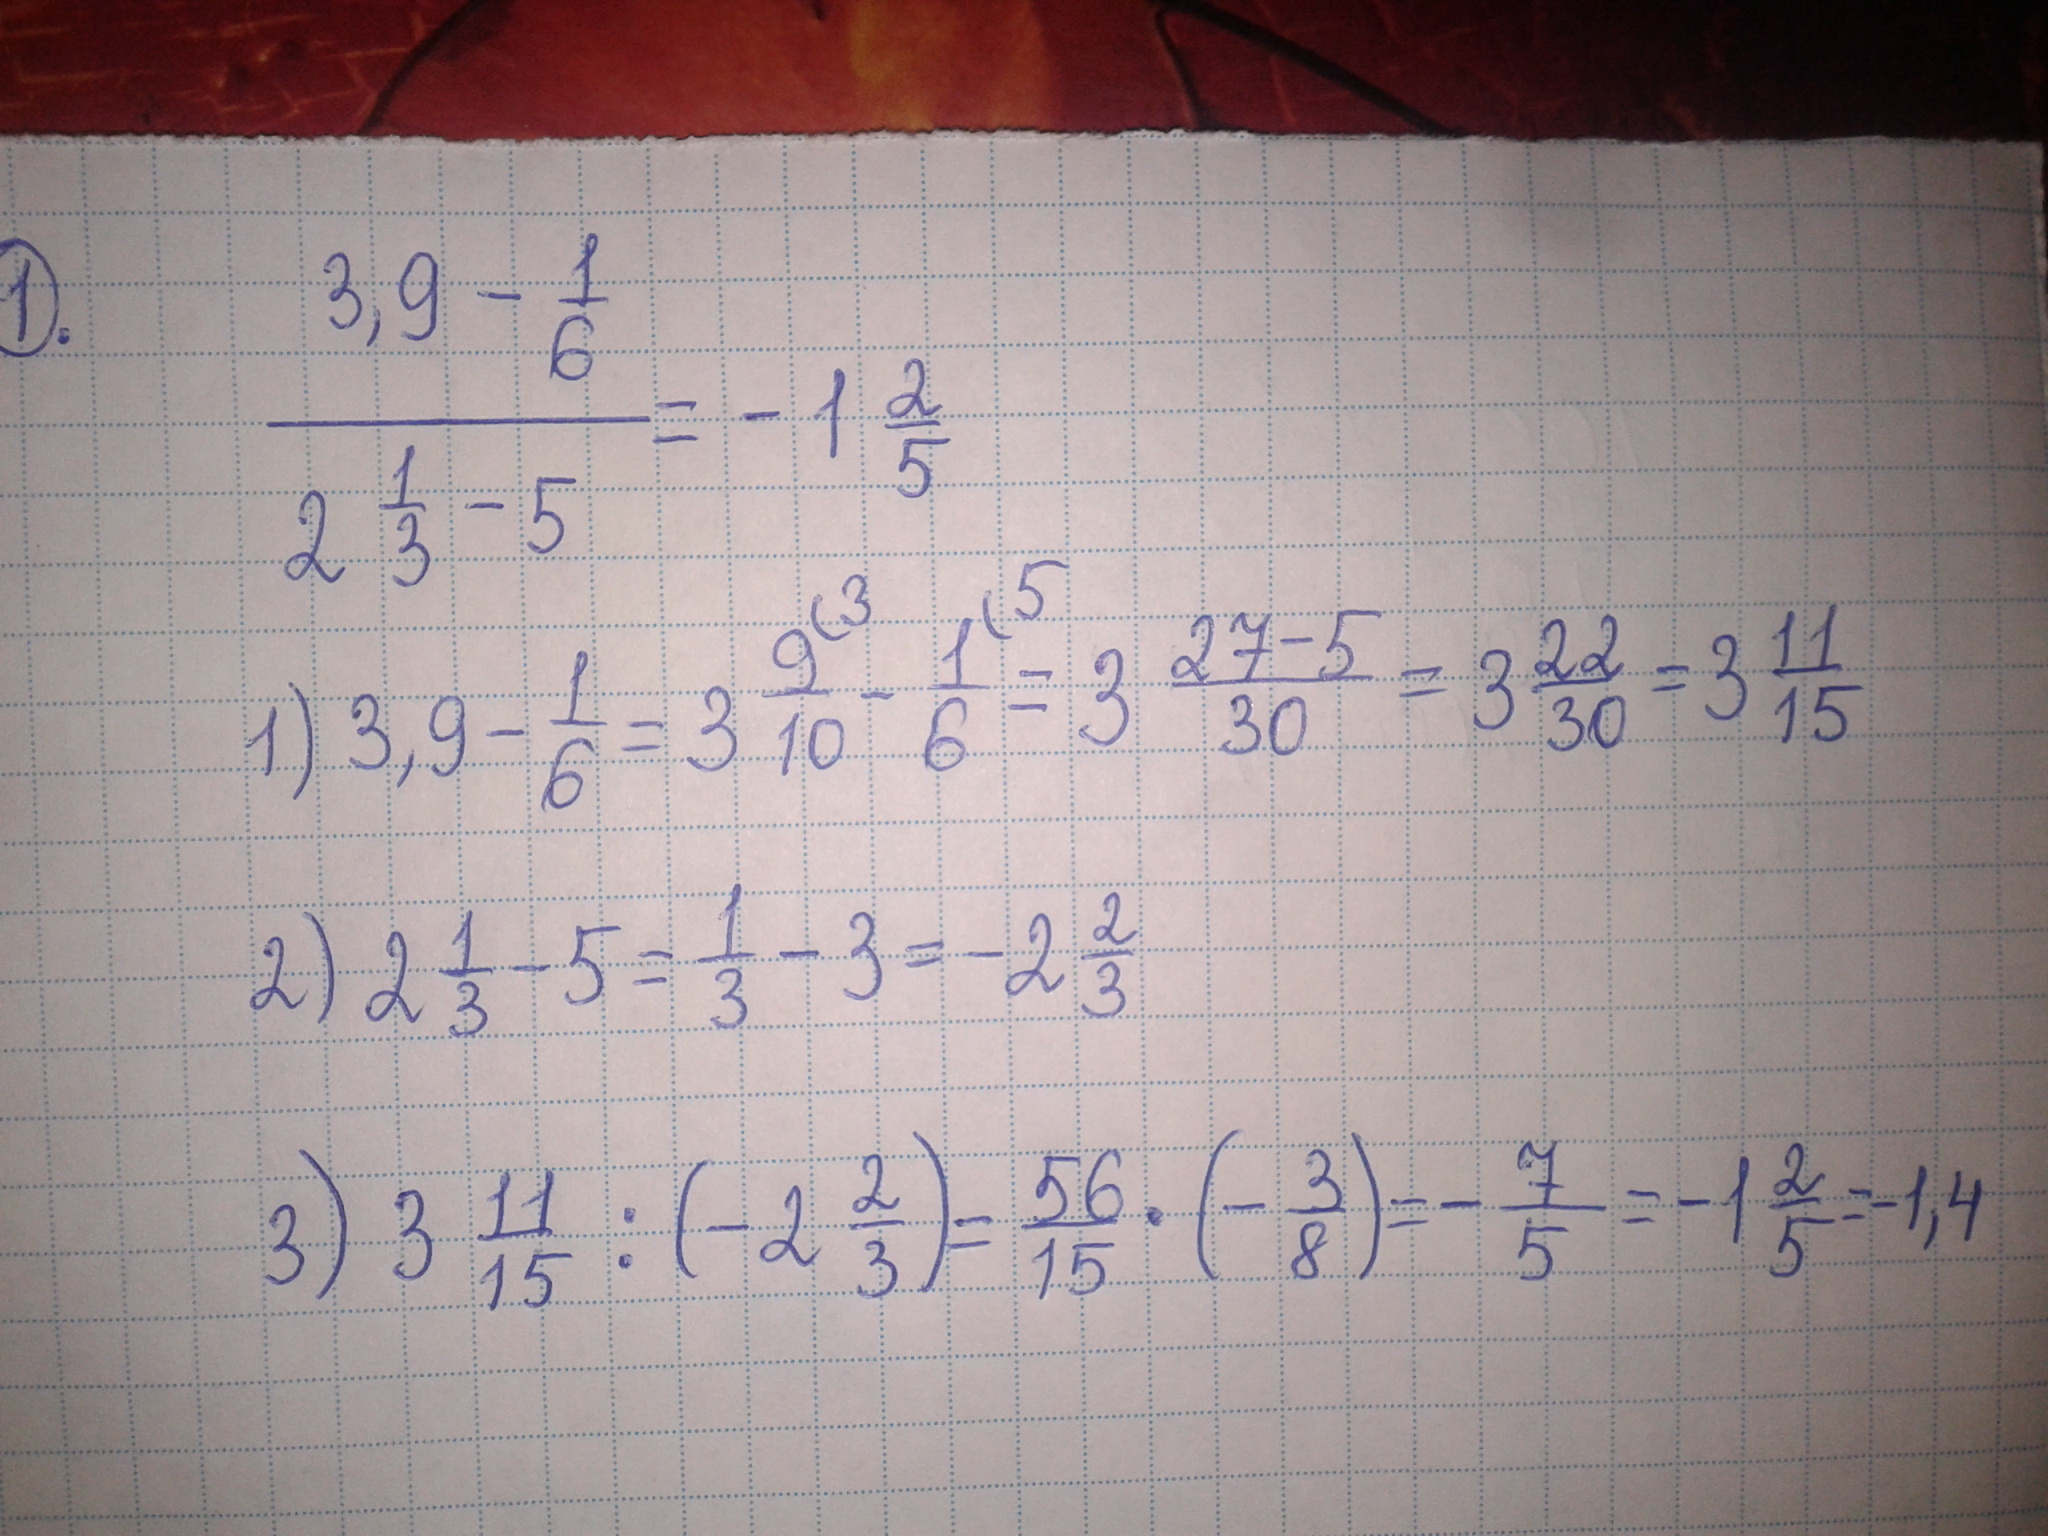 1. (3,9 - 1/6) / (2 1/3 - 5) = - 1 2/5
1) 3,9 - 1/6 = 3 9/10 (3 - 1/6 (5 = 3 (27-5)/30 = 3 22/30 = 3 11/15
2) 2 1/3 - 5 = 1/3 - 3 = - 2 2/3
3) 3 11/15 : (- 2 2/3) = 56/15 · (- 3/8) = - 7/5 = - 1 2/5 = -1,4